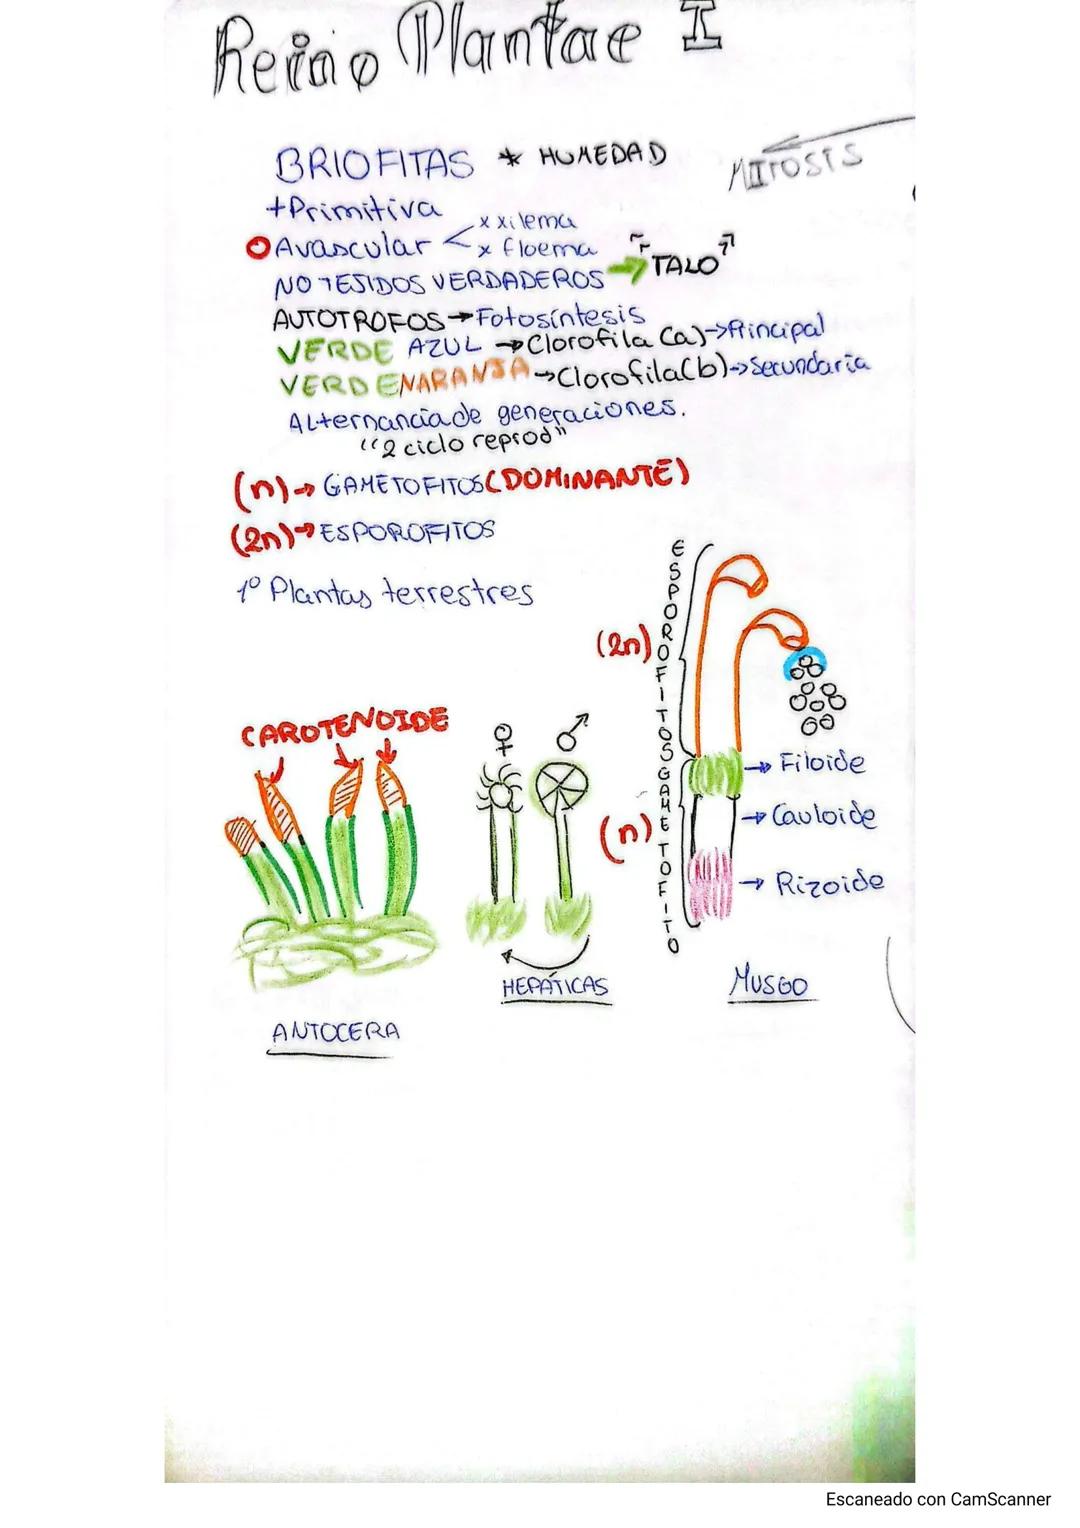 Reino Plantae I
BRIOFITAS * HUMEDAD
MITOSIS
+Primitiva
Avascular < x xilema
x floema
NO TEJIDOS VERDADEROS → "TALO"
AUTOTROFOS → Fotosíntesis
VERDE AZUL → Clorofila (a) → Principal
VERDE NARANJA → Clorofila(b) → Secundaria
Alternancia de generaciones.
"2 ciclo reprod"
(n) → GAMETOFITOS (DOMINANTE)
(2n) → ESPOROFITOS
1º Plantas terrestres
(2n) ESPOROFITOS
CAROTENOIDE
♀ ♂
(n) GAMETOFITO
→ Filoide
→ Cauloide
→ Rizoide
HEPÁTICAS
MUSGO
ANTOCERA
Escaneado con CamScanner